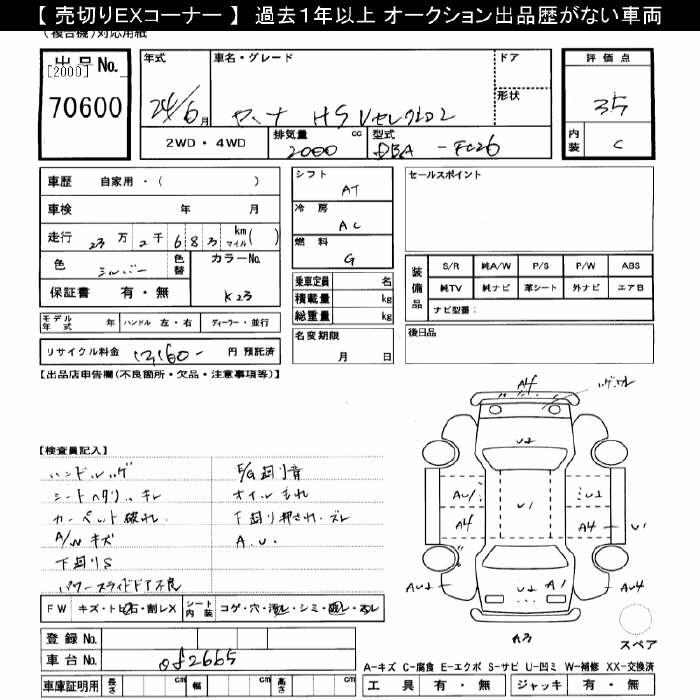 【 売切りEXコーナー 】 過去1年以上 オークション出品歴がない車両
(複合機)対応用紙
出品No.
[2000]
70600
年式
24/6月
車名・グレード
セレナ HS Vセレクション2
ドア
形状
評価点
3.5
内装
C
2WD・4WD
排気量
2000 cc
型式
DBA-FC26
車歴 自家用・( )
車検 年 月
走行 23万2千683 km マイル( )
色 シルバー 色替
カラーNo.
K23
保証書 有・無
モデル年式 年 ハンドル 左・右 ディーラー・並行
リサイクル料金 12,160- 円 預託済
シフト
AT
冷房
AC
燃料
G
乗車定員 名
積載量 kg
総重量 kg
名変期限
月 日
セールスポイント
装備品
S/R 純A/W P/S P/W ABS
純TV 純ナビ 革シート 外ナビ エアB
ナビ型番:
後日品
【出品店申告欄(不良箇所・欠品・注意事項等)】
【検査員記入】
ハンドルハゲ
シートヘタリ、キレ
カーペット破れ
A/Wキズ
下廻りS
パワースライドドア不良
E/G廻り音
オイルもれ
下廻り押され・ズレ
A.U.
FW キズ・トビ石・割レX
シート内装 コゲ・穴・汚レ・シミ・破レ・スレ
登録No.
車台No. 082665
車庫証明用 長さ cm 幅 cm 高さ cm
A4
ハゲ、ワレ
U2
AU1
U1
A4
A4
U1
AU2
U2
A1
AU4
A3
スペア
A-キズ C-腐食 E-エクボ S-サビ U-凹ミ W-補修 XX-交換済
工具 有・無 ジャッキ 有・無